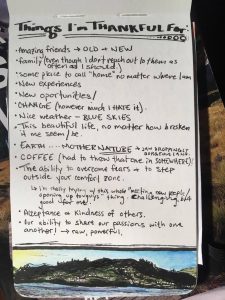 Things I'm THANKFUL For:
•Amazing friends → OLD + NEW
•Family (even though I dont reach out to them as
often as I should)
•Some place to call "home" no matter where I am
•New experiences
•New oportunities!
•CHANGE (however much I HATE it).
•Nice weather - BLUE SKIES
•This beautiful life, no matter how broken
it me seem/be.
•EARTH... MOTHER NATURE → JAW DROPPINGLY
GORGEOUS
•COFFEE (had to throw that one in SOMEWHERE)!
•The ability to overcome fears + to step
outside your comfort zone.
↳ I'm really trying w/ this whole "meeting new people/
opening up to guys" thing. Challenging, but
good for me!
•Acceptance & kindness of others.
•Our ability to share our passions with one
another! → raw, powerful.